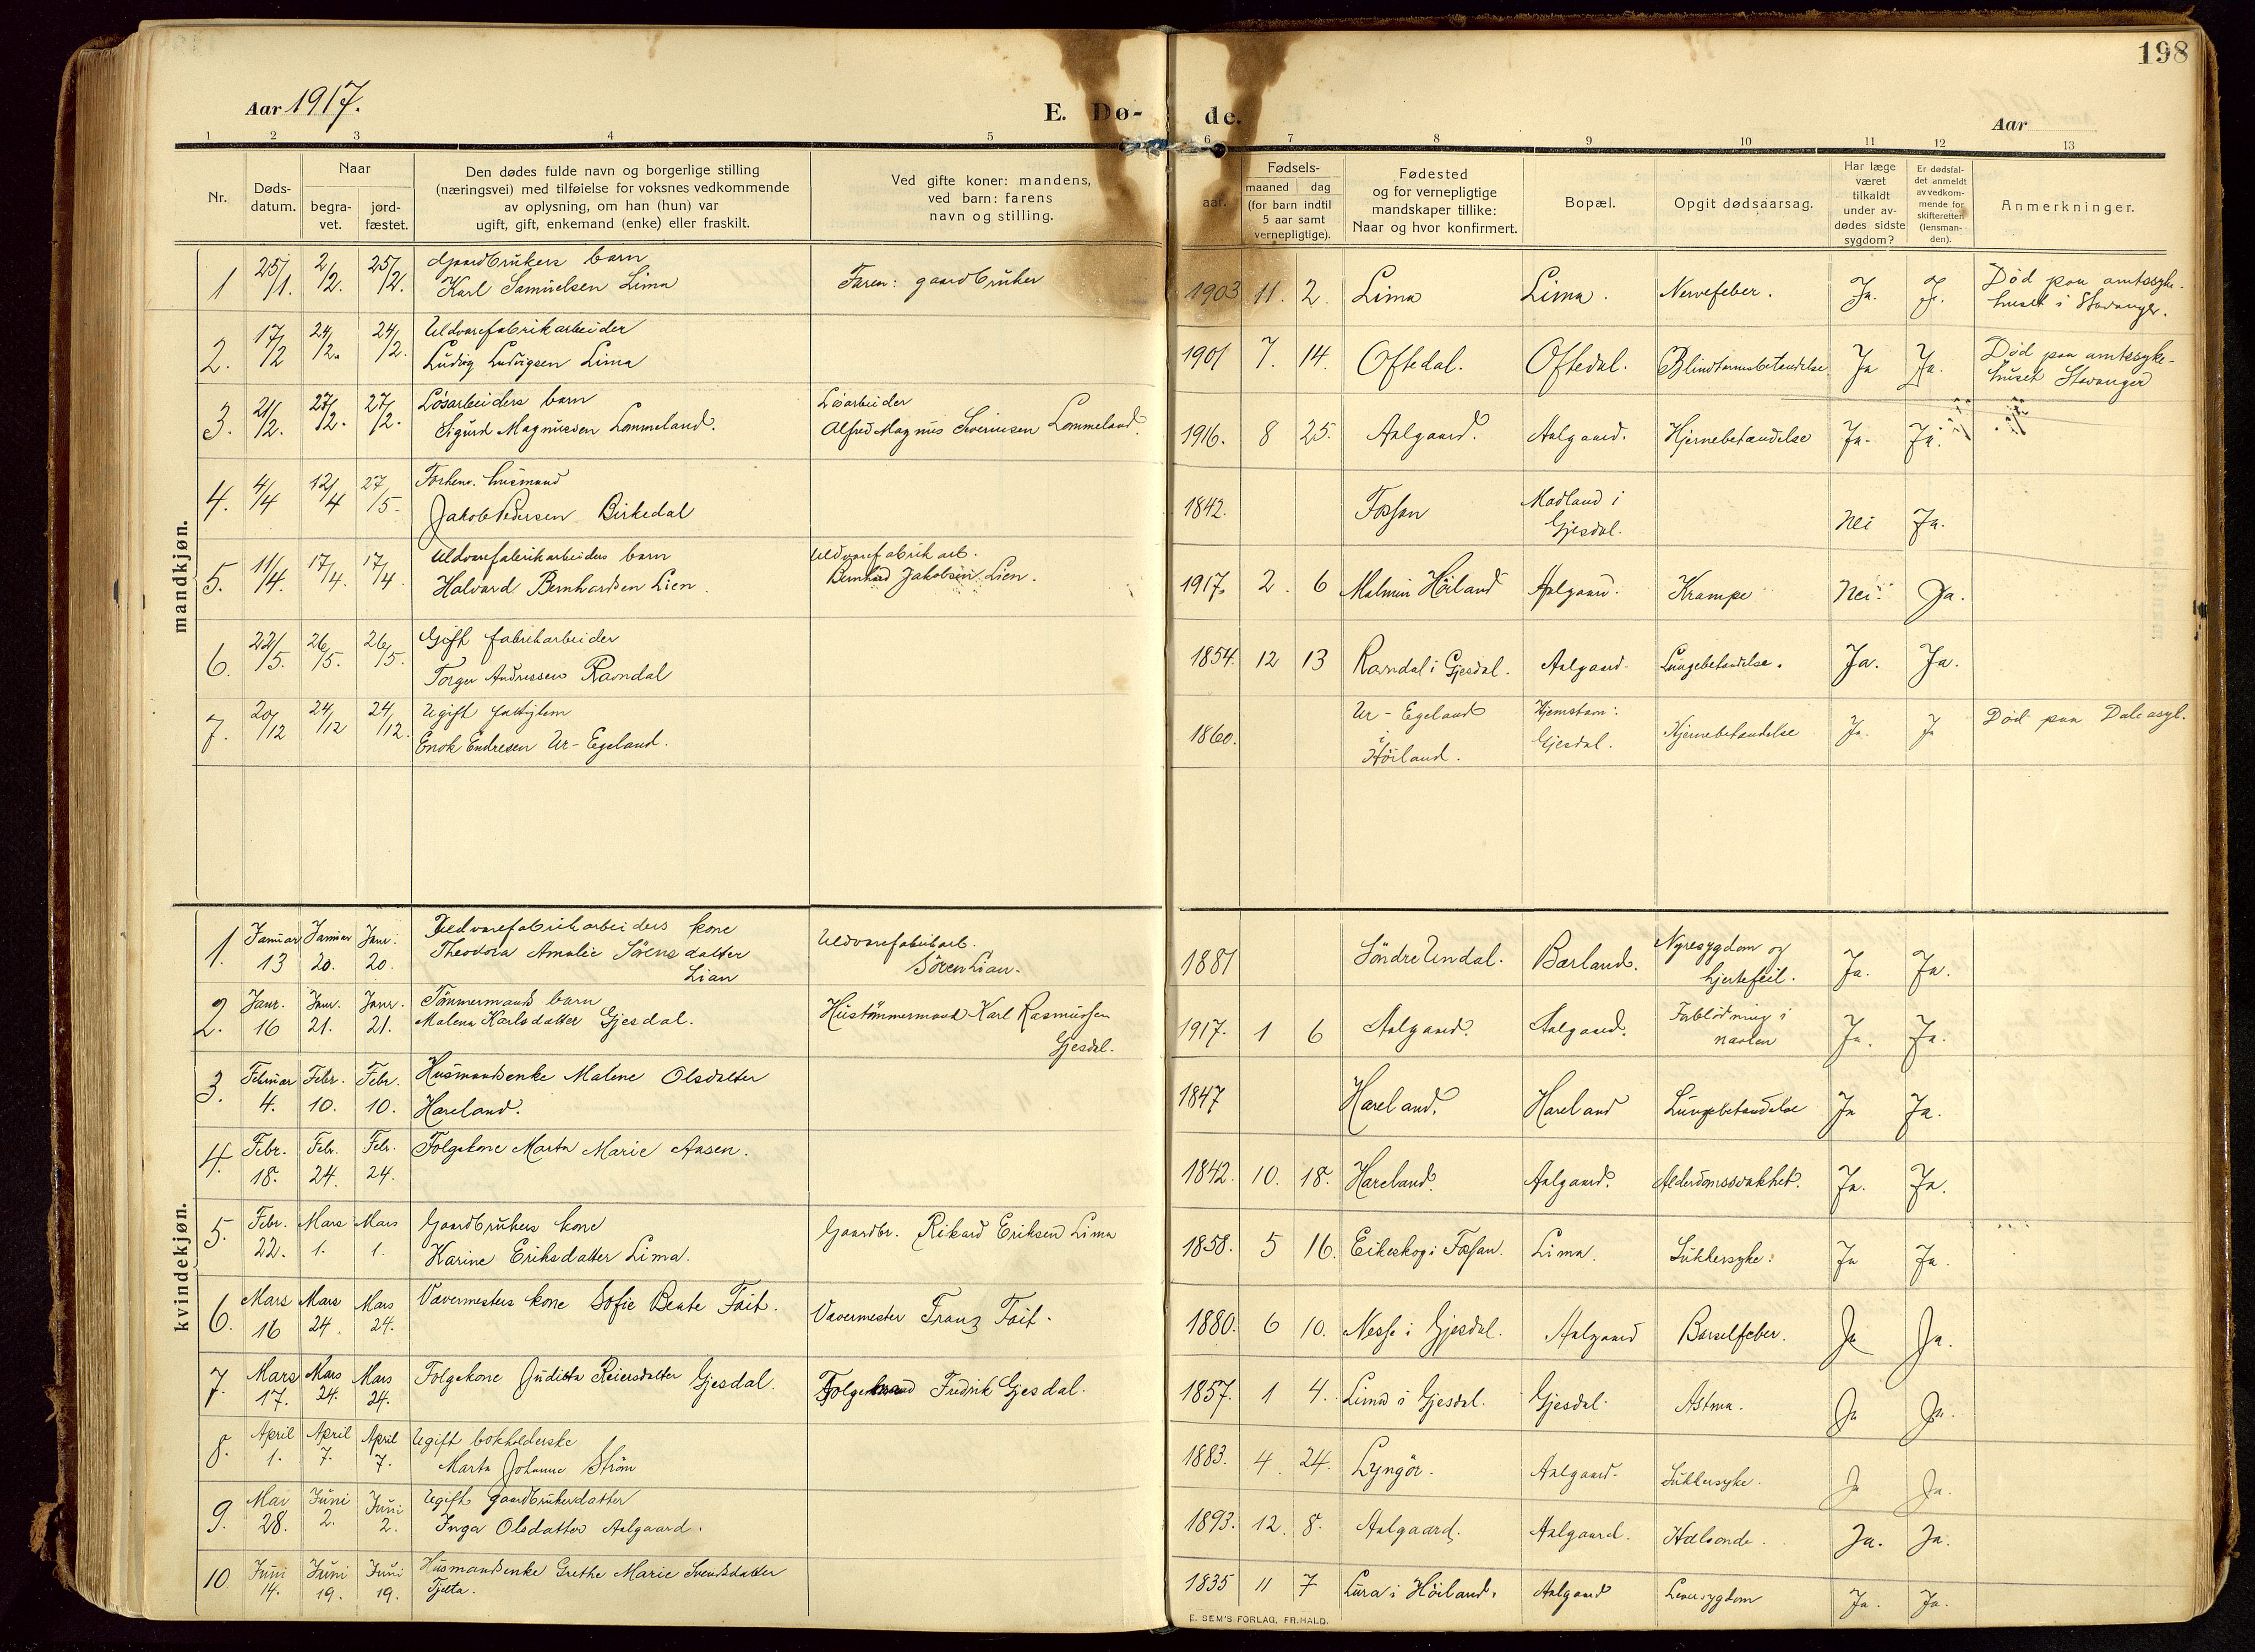 198
Aar 1917.
E. Dø-
de.
Aar
1 2 3 4 5 6 7 8 9 10 11 12 13
Nr.
Døds-
datum.
Naar
begra-
vet.
jord-
fæstet.
Den dødes fulde navn og borgerlige stilling
(næringsvei) med tilføielse for voksnes vedkommende
av oplysning, om han (hun) var
ugift, gift, enkemand (enke) eller fraskilt.
Ved gifte koner: mandens,
ved barn: farens
navn og stilling.
Fødsels-
aar.
maaned
dag
(for barn indtil
5 aar samt
vernepligtige).
Fødested
og for vernepligtige
mandskaper tillike:
Naar og hvor konfirmert.
Bopæl.
Opgit dødsaarsag.
Har læge
været
tilkaldt
under av-
dødes sidste
sygdom?
Er dødsfal-
det anmeldt
av vedkom-
mende for
skifteretten
(lensman-
den).
Anmerkninger.
mandkjøn.
1 25/1. 2/2. 25/2. Gaardbrukers barn
Karl Samuelsen Lima
Faren: gaardbruker
1903 11. 2. Lima Lima. Nervefeber. Ja. J. Død paa amtssyke-
huset i Stavanger.
2. 17/2 24/2. 24/2. Uldvarefabrikarbeider
Ludvig Ludvigsen Lima
1901 7. 14. Oftedal. Oftedal. Blindtarmsbetændelse Ja Ja. Død paa amtssyke-
huset Stavanger
3. 21/2. 27/2. 27/2. Løsarbeiders barn
Sigurd Magnussen Lommeland.
Løsarbeider
Alfred Magnus Severinsen Lommeland.
1916. 8 25. Aalgaard. Aalgaard. Hjernebetændelse Ja. Ja.
4. 4/4 12/4 27/5. Forhenv. husmand
Jakob Pedersen Birkedal
1842. Fossan Madland i
Gjesdal.
Nei Ja.
5. 11/4. 17/4. 17/4. Uldvarefabrikarbeiders barn
Halvard Bernhardsen Lien.
Uldvarefabrikarb.
Bernhard Jakobsen Lien.
1917. 2. 6 Malmin Höiland Aalgaard. Krampe Nei. Ja.
6. 22/5. 26/5. 26/5. Gift fabrikarbeider
Torger Andreassen Ravndal
1854. 12 13 Ravndal i Gjesdal. Aalgaard. Lungebetændelse. Ja. Ja.
7. 20/12 24/12 24/12. Ugift fattiglem
Enok Endresen Ur-Egeland.
1860. Ur-Egeland
i
Höiland.
Hjemstavn:
Gjesdal.
Hjernebetændelse Ja. Ja Död paa Dale asyl.
kvindekjøn.
1. Januar 13 Januar 20. Janr. 20. Uldvarefabrikarbeiders kone
Theodora Amalie Sörensdatter
Lian
Uldvarefabrikarb.
Sören Lian.
1881 Söndre Undal. Bærland. Nyresygdom og
hjertefeil.
Ja. Ja.
2. Janr. 16 Janr. 21. Janr. 21. Tömmermands barn
Malena Karlsdatter Gjesdal.
Hustömmermand Karl Rasmussen
Gjesdal.
1917. 1 6 Aalgaard. Aalgaard. Forblödning i
navlen
Ja. Ja.
3. Februar 4. Febr. 10. Febr. 10. Husmandsenke Malene Olsdatter
Hareland.
1847 Hareland. Hareland Lungebetændelse Ja Ja.
4. Febr. 18. Febr. 24. Febr. 24. Folgekone Marta Marie Aasen.
1842. 10. 18. Hareland. Aalgaard. Alderdomssvakhet. Ja. Ja.
5. Febr. 22. Mars 1. Mars 1. Gaardbrukers kone
Karine Eriksdatter Lima.
Gaardbr. Rikard Eriksen Lima
1858. 5 16. Eikeskog i Fossan. Lima. Sukkersyke. Ja Ja.
6. Mars 16 Mars 24. Mars 24. Vævermesters kone Sofie Beate Fait.
Vævermester Franz Fait.
1880. 6 10. Nesse i Gjesdal. Aalgaard Barselfeber. Ja Ja.
7. Mars 17. Mars 24. Mars 24. Folgekone Juditta Reiersdatter Gjesdal.
Folgemand Fredrik Gjesdal.
1857. 1 4. Lima i Gjesdal. Gjesdal. Astma. Ja Ja.
8. April 1. April 7. April 7. Ugift bokholderske
Marta Johanne Ström
1883. 4. 24. Lyngör. Aalgaard. Sukkersyke. Ja Ja.
9. Mai 28. Juni 2. Juni 2. Ugift gaardbrukerdatter
Inga Olsdatter Aalgaard.
1893. 12. 8. Aalgaard. Aalgaard. Halsonde. Ja. Ja.
10. Juni 14. Juni 19. Juni 19. Husmandsenke Grethe Marie Svendsdatter
Tjetta.
1835 11 7 Lura i Höiland. Aalgaard Leversygdom Ja. Ja.
E. SEM'S FORLAG, FR.HALD.